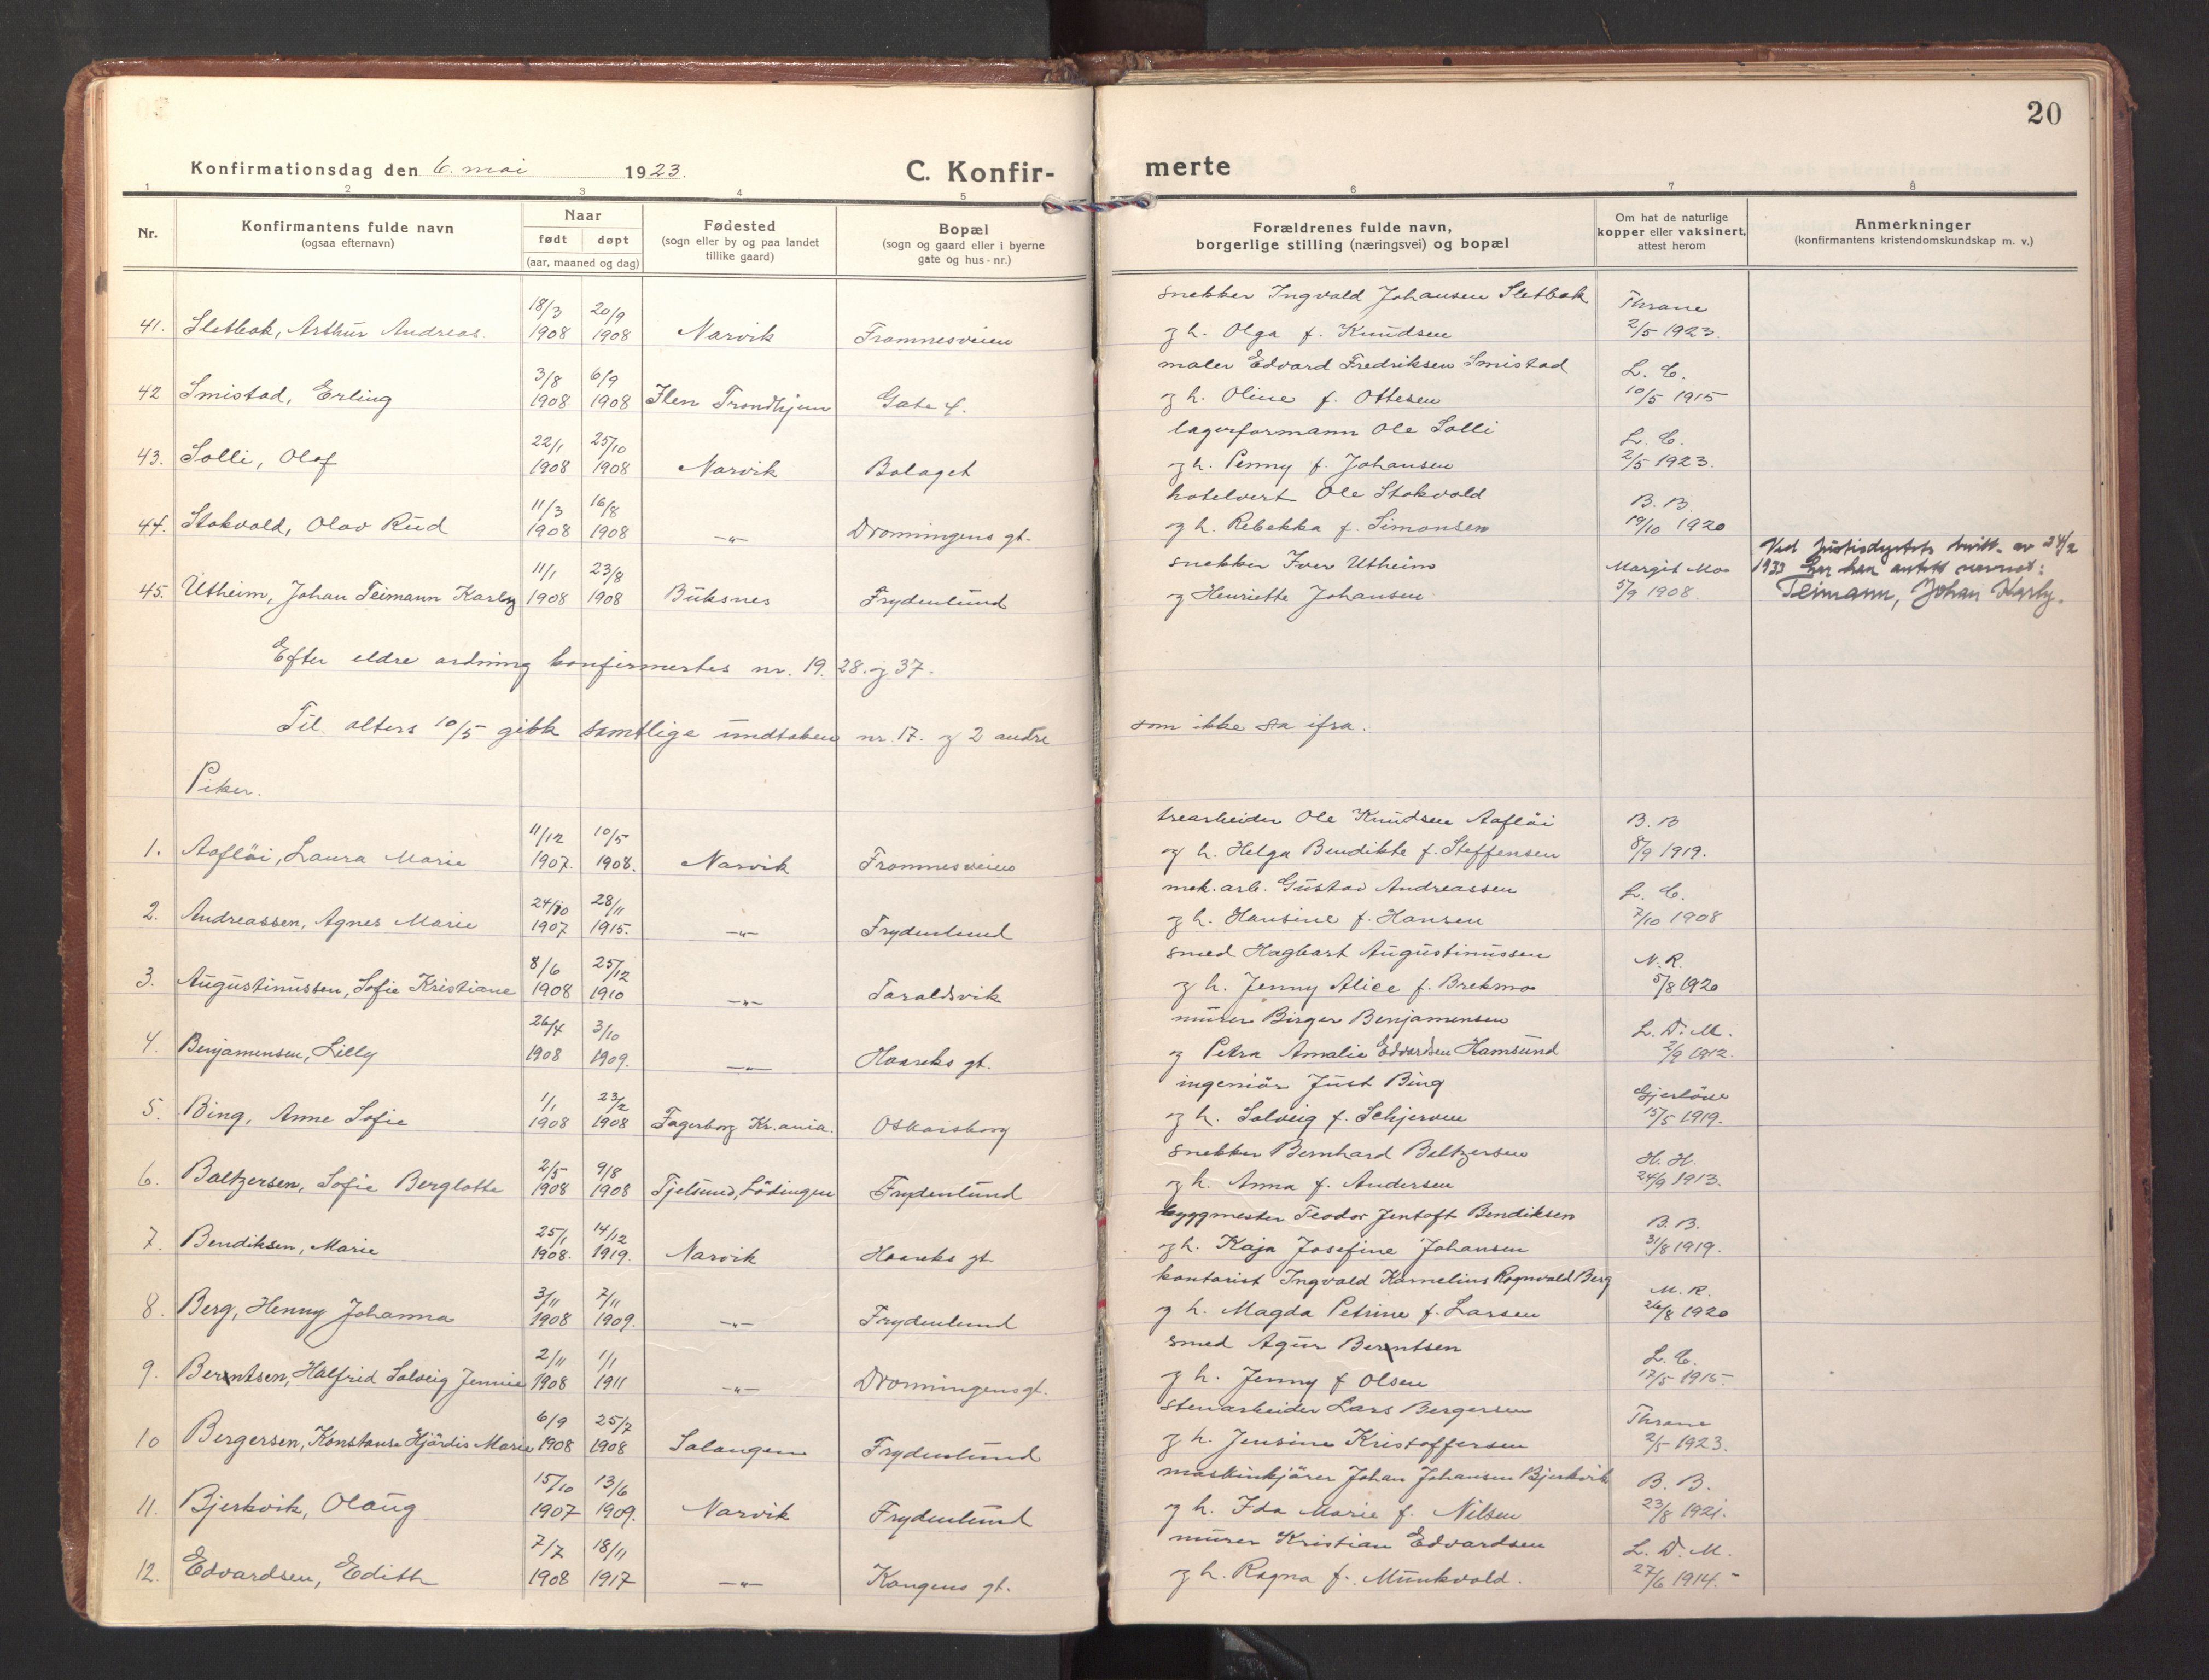 20
Konfirmationsdag den 6. mai 1923.
C. Konfir-
merte
1 2 3 4 5 6 7 8
Nr.
Konfirmantens fulde navn
(ogsaa efternavn)
Naar
født døpt
(aar, maaned og dag)
Fødested
(sogn eller by og paa landet
tillike gaard)
Bopæl
(sogn og gaard eller i byerne
gate og hus-nr.)
Forældrenes fulde navn,
borgerlige stilling (næringsvei) og bopæl
Om hat de naturlige
kopper eller vaksinert,
attest herom
Anmerkninger
(konfirmantens kristendomskundskap m. v.)
18/3 20/9 snekker Ingvald Johansen Sletbak Thrane
41. Sletbak, Arthur Andreas. 1908 1908 Narvik Framnesveien og h. Olga f. Knudsen 2/5 1923.
3/8 6/9 maler Edvard Fredriksen Smistad L. C.
42 Smistad, Erling 1908 1908 Ilen Trondhjem Gate 4. og h. Oline f. Ottesen 10/5 1915
22/1 25/10 lagerformann Ole Solli L. C.
43. Solli, Olaf 1908 1908 Narvik Bolaget og h. Penny f. Johansen 2/5 1923.
11/3 16/8 hotelvert Ole Stokvold B. B.
44. Stokvold, Olav Rud 1908 1908 —"— Dronningens gt. og h. Rebekka f. Simonsen 19/10 1920
11/1 23/8 snekker Iver Utheim Margit Moe
45. Utheim, Johan Teimann Karby 1908 1908 Buksnes Frydenlund og Henriette Johansen 5/9 1908.
Ved Justisdeptets bevill. av 24/2
1933 har han antatt navnet:
Teimann, Johan Karby.
Efter eldre ordning konfirmertes nr. 19. 28. og 37.
Til alters 10/5 gikk samtlige undtaken nr. 17. og 2 andre som ikke sa ifra.
Piker.
11/12 10/5 trearbeider Ole Knudsen Aaflöi B. B
1. Aaflöi, Laura Marie 1907. 1908. Narvik Framnesveien og h. Helga Bendikte f. Steffensen 8/9 1919.
24/10 28/11 mek. arb. Gustav Andreassen L. C.
2. Andreassen, Agnes Marie 1907 1915. —"— Frydenlund og h. Hansine f. Hansen 7/10 1908
8/6 25/12 smed Hagbart Augustinussen N. R.
3. Augustinussen, Sofie Kristiane 1908 1910 —"— Taraldsvik og h. Jenny Alice f. Brekmo 5/8 1920
26/4 3/10 murer Birger Benjamensen L. D. M.
4. Benjamensen, Lilly 1908 1909. —"— Haareks gt. og Petra Amalie Edvardsen Hamsund 2/9 1912.
1/1 23/2 ingeniör Just Bing Gjerlöse
5. Bing, Anne Sofie 1908 1908 Fagerborg Kr.ania. Oskarsborg og h. Solveig f. Schjerven 15/5 1919.
2/5 9/8 snekker Bernhard Baltzersen H. H.
6. Baltzersen, Sofie Berglotte 1908 1908 Tjelsund, Lödingen Frydenlund og h. Anna f. Andersen 24/9 1913.
25/1 14/12 byggmester Teodor Jentoft Bendiksen B. B.
7. Bendiksen, Marie 1908. 1919. Narvik Haareks gt. og h. Kaja Josefine Johansen 31/8 1919.
3/11 7/11 kontorist Ingvald Kornelius Ragnvald Berg M. R.
8. Berg, Henny Johanna 1908 1909. —"— Frydenlund og h. Magda Petrine f. Larsen 26/8 1920
2/11 1/1 smed Agur Berntsen L. C.
9. Berntsen, Halfrid Solveig Jennie 1908 1911 —"— Dronningens gt. og h. Jenny f Olsen 17/5 1915.
6/9 25/7 stenarbeider Lars Bergersen Thrane
10 Bergersen, Konstanse Hjördis Marie 1908 1908 Salangen Frydenlund og h. Jensine Kristoffersen 2/5 1923.
15/10 13/6 maskinkjörer Johan Johansen Bjerkvik B. B.
11. Bjerkvik, Olaug 1907 1909. Narvik Frydenlund og h. Ida Marie f. Nilsen 23/8 1921.
7/7 18/11 murer Kristian Edvardsen L. D. M.
12. Edvardsen, Edith 1908 1917 —"— Kongens gt. og h. Ragna f. Munkvold. 27/6 1914.